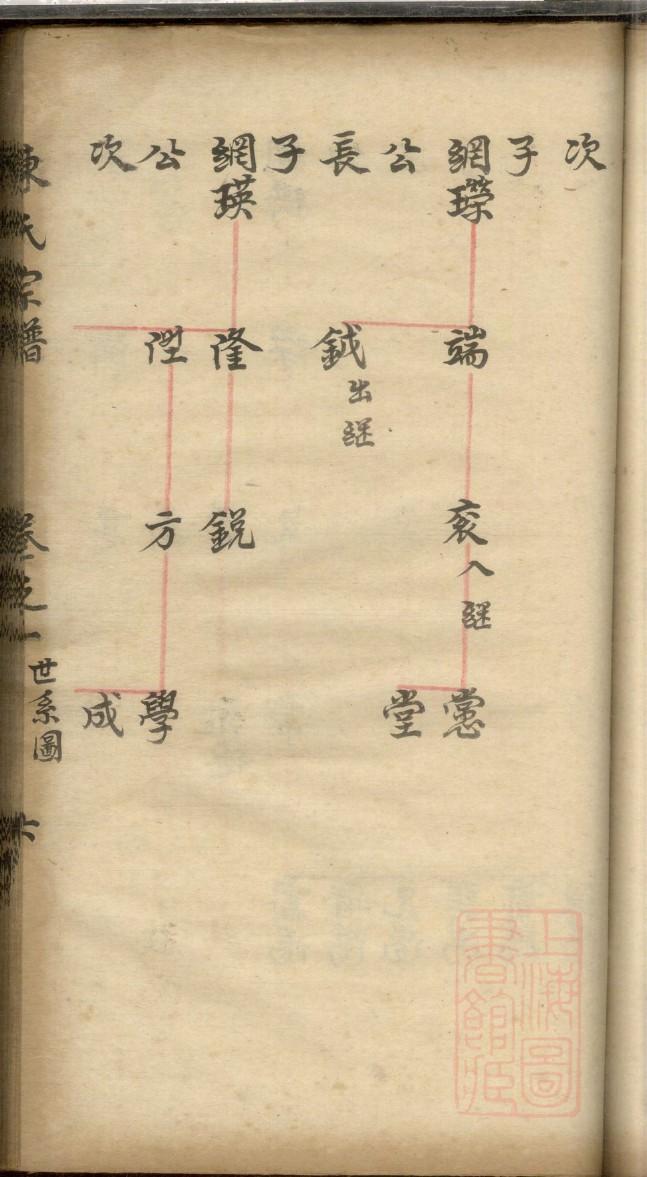 次
子
網瓈
端
衮入継
憲
公
鉞出継
堂
長
子
網瑛
隆
鋭
公
陞
方
學
次
成
陳氏宗譜
卷之一
世系圖
六
上海圖
書館藏